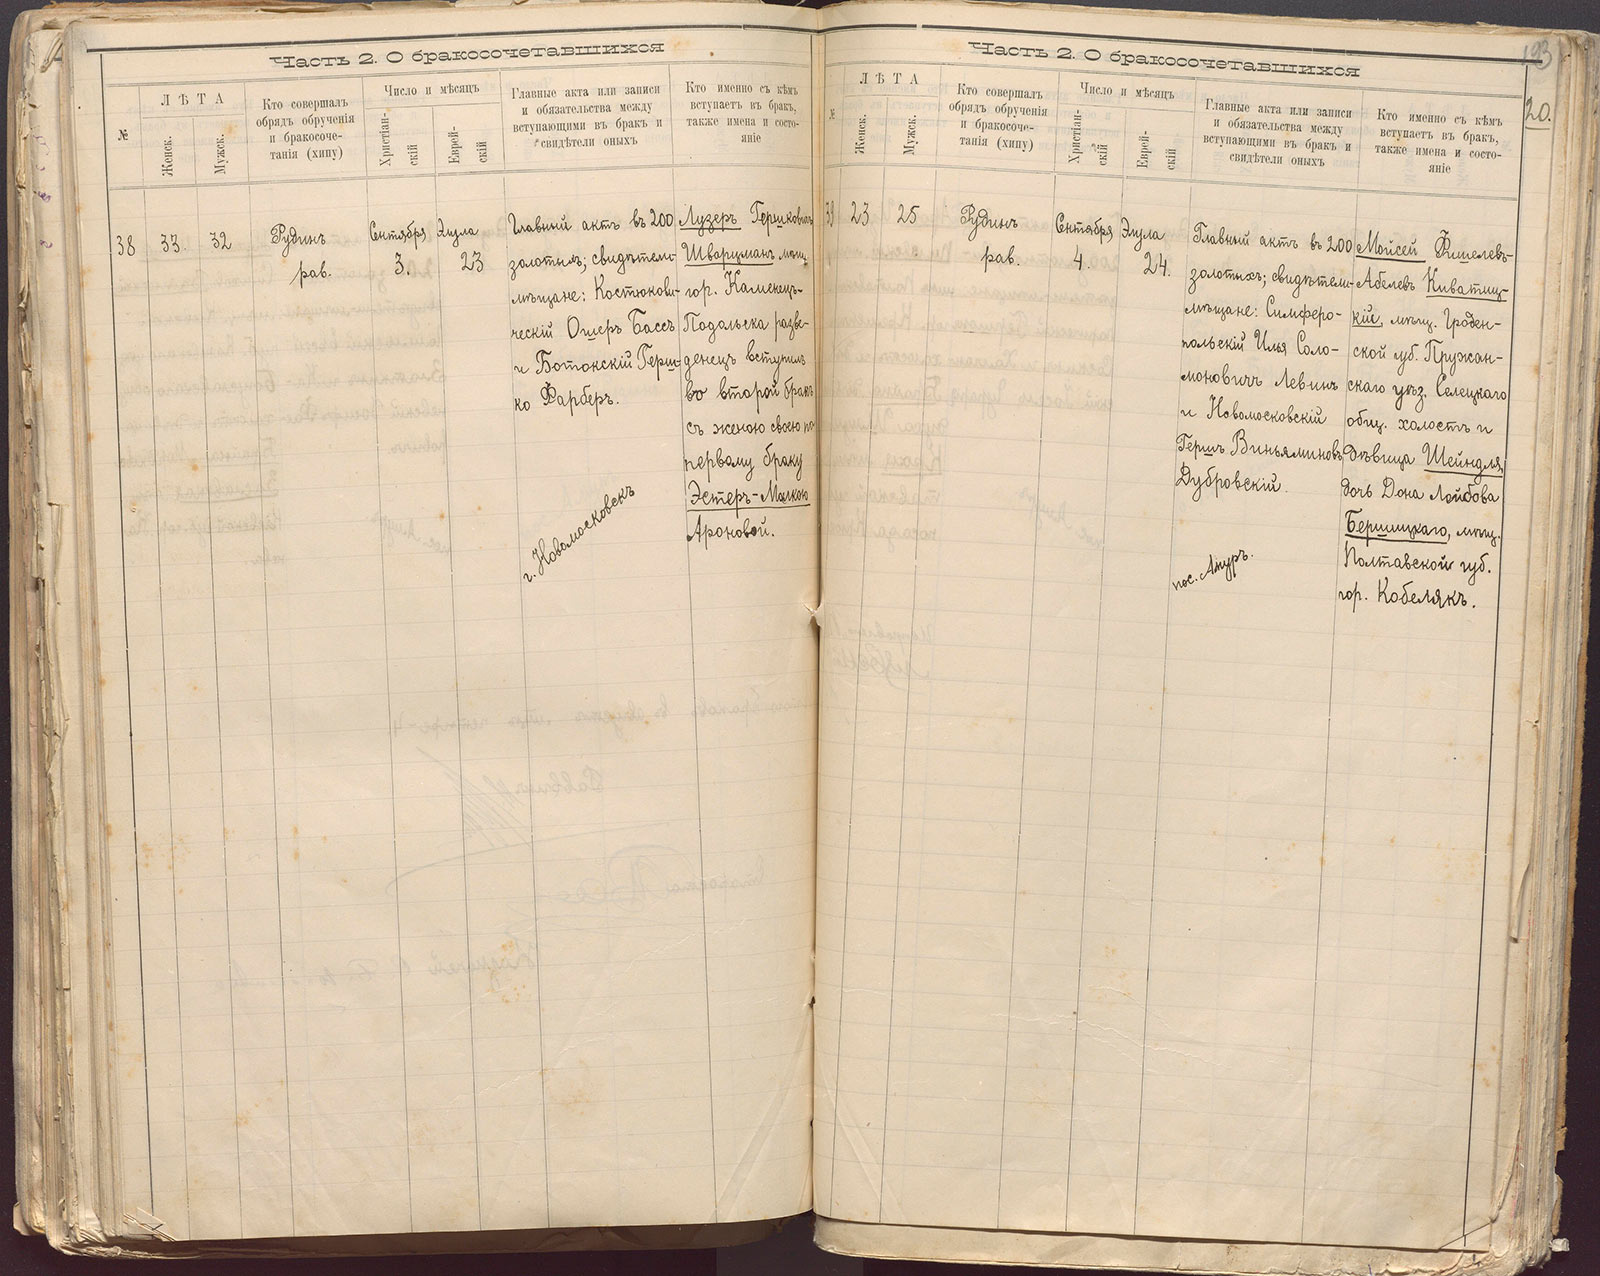 Часть 2. О бракосочетавшихся
№
ЛѢТА
Женск.
Мужск.
Кто совершалъ
обрядъ обрученія
и бракосоче-
танія (хипу)
Число и мѣсяцъ
Христіан-
скій
Еврей-
скій
Главные акта или записи
и обязательства между
вступающими въ бракъ и
свидѣтели оныхъ
Кто именно съ кѣмъ
вступаетъ въ бракъ,
также имена и состо-
яніе
38
33.
32
Рудинъ
рав.
Сентября
3.
Элула
23
Главный актъ въ 200
золотыхъ; свидѣтели-
мѣщане: Костюкови-
ческій Ошеръ Бассъ
и Ботокскій Герш-
ко Фарберъ.
г. Новомосковскъ
Лузеръ Гершковичъ
Шварцманъ мѣщ.
гор. Каменецъ-
Подольска разве-
денецъ вступилъ
во второй бракъ
съ женою своею по
первому браку
Эстеръ-Малкою
Ароновой.
193
20.
Часть 2. О бракосочетавшихся
№
ЛѢТА
Женск.
Мужск.
Кто совершалъ
обрядъ обрученія
и бракосоче-
танія (хипу)
Число и мѣсяцъ
Христіан-
скій
Еврей-
скій
Главные акта или записи
и обязательства между
вступающими въ бракъ и
свидѣтели оныхъ
Кто именно съ кѣмъ
вступаетъ въ бракъ,
также имена и состо-
яніе
39
23
25
Рудинъ
рав.
Сентября
4.
Элула
24.
Главный актъ въ 200
золотыхъ; свидѣтели-
мѣщане: Симферо-
польскій Илья Соло-
моновичъ Левинъ
и Новомосковскій
Гершъ Виньяминовъ
Дубровскій.
пос. Амуръ.
Мойсей Фишелевъ-
Абелевъ Киватиц-
кій, мѣщ. Гроден-
ской губ. Пружан-
скаго уѣз. Селецкаго
общ. холостъ и
дѣвица Шейндля,
дочь Дона Лейбова
Бершицкаго, мѣщ.
Полтавской губ.
гор. Кобелякъ.